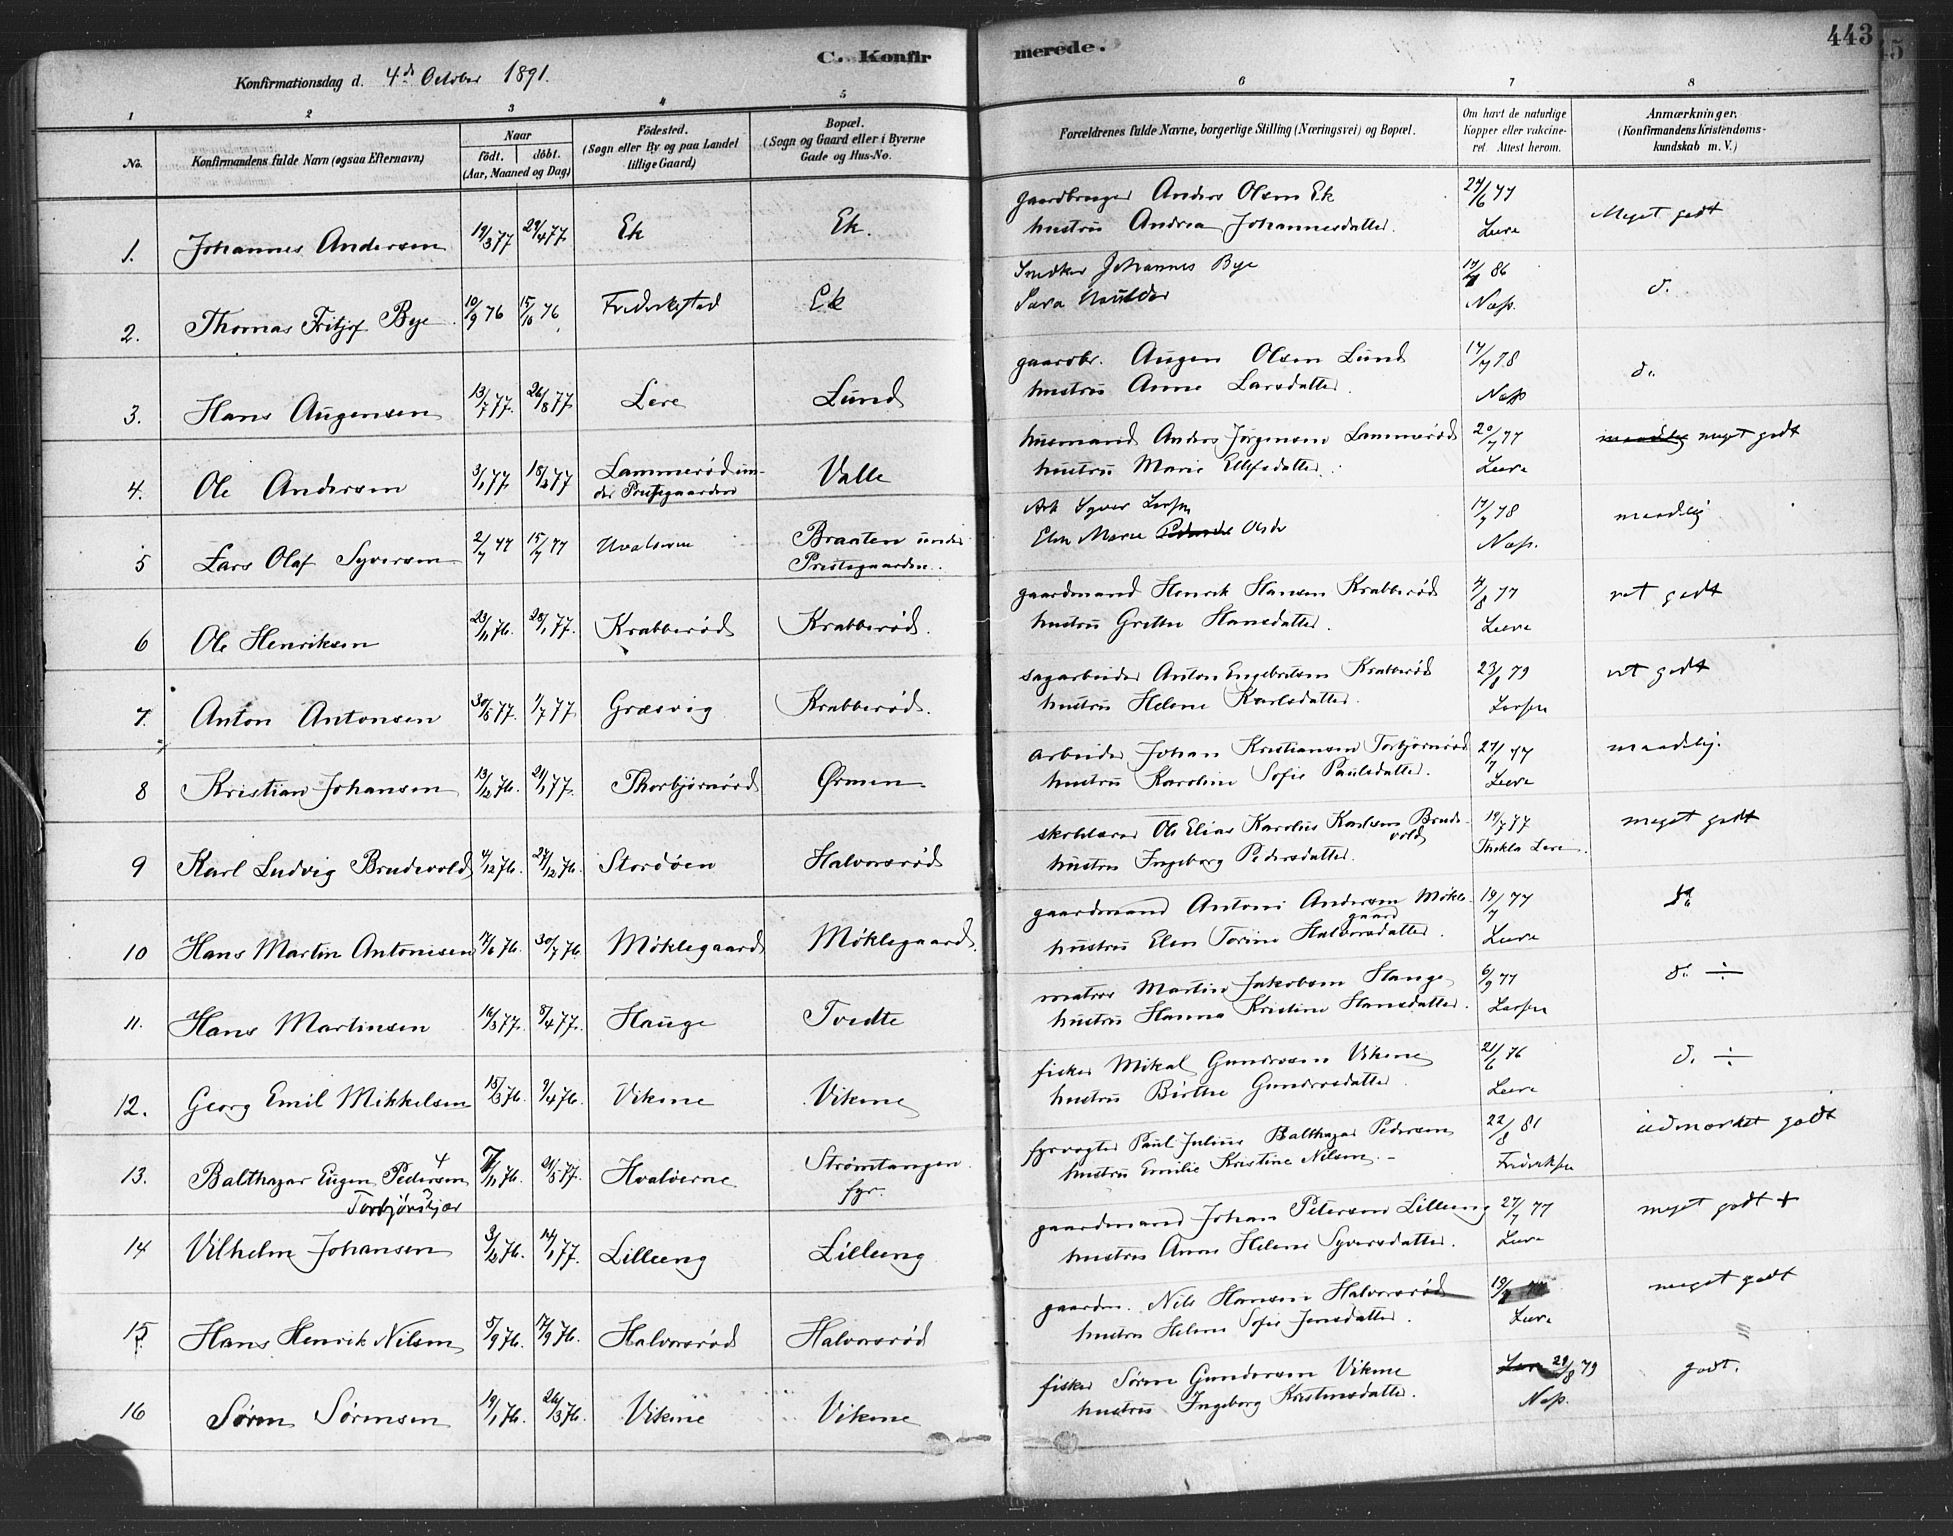 443
C. Konfirmerede.
Konfirmationsdag d. 4de October 1891.
1 2 3 4 5 6 7 8
No.
Konfirmandens fulde Navn (ogsaa Efternavn)
Naar
födt. döbt.
(Aar, Maaned og Dag)
Födested.
(Sogn eller By og paa Landet
tillige Gaard)
Bopæl.
(Sogn og Gaard eller i Byerne
Gade og Hus-No.
Forældrenes fulde Navne, borgerlige Stilling (Næringsvei) og Bopæl.
Om havt de naturlige
Kopper eller vakcine-
ret. Attest herom.
Anmærkninger.
(Konfirmandens Kristendoms-
kundskab m. V.)
1. Johannes Andersen 19/3 77 29/4 77 Ek Ek. gaardbruger Anders Olsen Ek 27/6 77 Meget godt
hustru Andrea Johannesdatter. Leere
2. Thomas Fritjof Bye 10/9 76 15/10 76 Frederikstad Ek Snedker Johannes Bye 86 d.
Sara Næs.
3. Hans Augensen 13/7 77. 26/8 77 Lere Lund gaardbr. Augen Olsen Lund 17/7 78 d.
hustru Anne Larsdatter. Næss
4. Ole Andersen 3/1 77. 18/3 77 Lammerød un- Valle husmand Anders Jørgensen Lammerød 20/7 77 maadelig meget godt
der Prestegaarden hustru Marie Ellefsdatter. Leere
5 Lars Olaf Syversen 2/7 77 15/7 77 Hvalsøen Braaten under Arb Syver Larsen 17/7 78 maadelig
Prestegaarden. Elen Marie Olsdr Næs.
6 Ole Henriksen 23/11 76. 28/1 77. Krabberød Krabberød. gaardmand Henrik Hansen Krabberød 4/8 77 ret godt
hustru Grethe Hansdatter. Leere
7. Anton Antonsen 30/5 77. 1/7 77 Græsvig Krabberød. sagarbeider Anton Engebretsen Krabberød 23/8 79 ret godt
hustru Helene Karlsdatter. Larsen
8 Kristian Johansen 13/12 76. 21/1 77. Thorbjørnrød Ørmen arbeider Johan Kristiansen Torbjørnrød 27/7 77 maadelig.
hustru Karoline Sofie Paulsdatter. Leere
9 Karl Ludvig Brudevold 4/12 76. 27/12 76. Stordøen Halvorsrød skolelærer Ole Elias Karolius Karlsen Brude- 19/7 77 meget godt
vold
hustru Ingeborg Pedersdatter. Thekla Leere.
10 Hans Martin Antonisen 17/6 76. 30/7 76. Møklegaard Møklegaard. gaardmand Antoni Andersen Møkle- 19/7 77 do.
gaard
hustru Elen Torine Halvorsdatter. Leere
11. Hans Martinsen 16/3 77. 8/4 77. Hauge Tvedte matros Martin Jakobsen Hauge 6/9 77 d. ÷
hustru Hanna Kristine Hansdatter. Larsen
12. Georg Emil Mikkelsen 15/3 76. 9/4 76. Vikene Vikene fisker Mikal Gundersen Vikene 21/6 76 d. ÷
hustru Birthe Gundersdatter. Leere
13. Balthazar Eugen Pedersen 4 7/11 76. 21/5 77. Hvaløerne Strømtangen fyrvogter Paul Julius Balthazar Pedersen 22/8 81 udmærket godt
Torbjørnskjær fyr. hustru Emilie Kristine Nilsen. – Fredriksen
14 Vilhelm Johansen 3/12 76. 14/1 77. Lilleeng Lilleeng gaardmand Johan Petersen Lilleeng 27/7 77 meget godt +
hustru Anne Helene Syversdatter. Leere
15. Hans Henrik Nilsen 5/9 76. 17/9 76. Halvorsrød Halvorsrød gaardm. Nils Hansen Halvorsrød 19/7 meget godt
hustru Helene Sofie Jensdatter. Leere
16 Søren Sørensen 19/1 76. 26/3 76. Vikene Vikene fisker Søren Gundersen Vikene 29/8 79 godt.
hustru Ingeborg Kristensdatter. Næs.